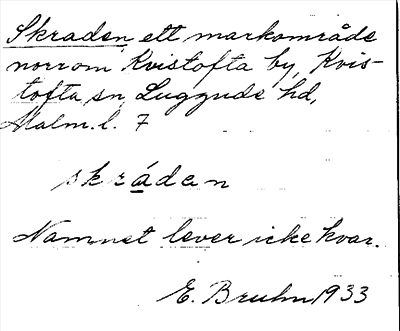 Skraden ett markområde
norrom Kvistofta by, Kvis-
tofta sn, Luggude hd,
Malm. l. 7
skráden
Namnet lever icke kvar.
E. Bruhn 1933